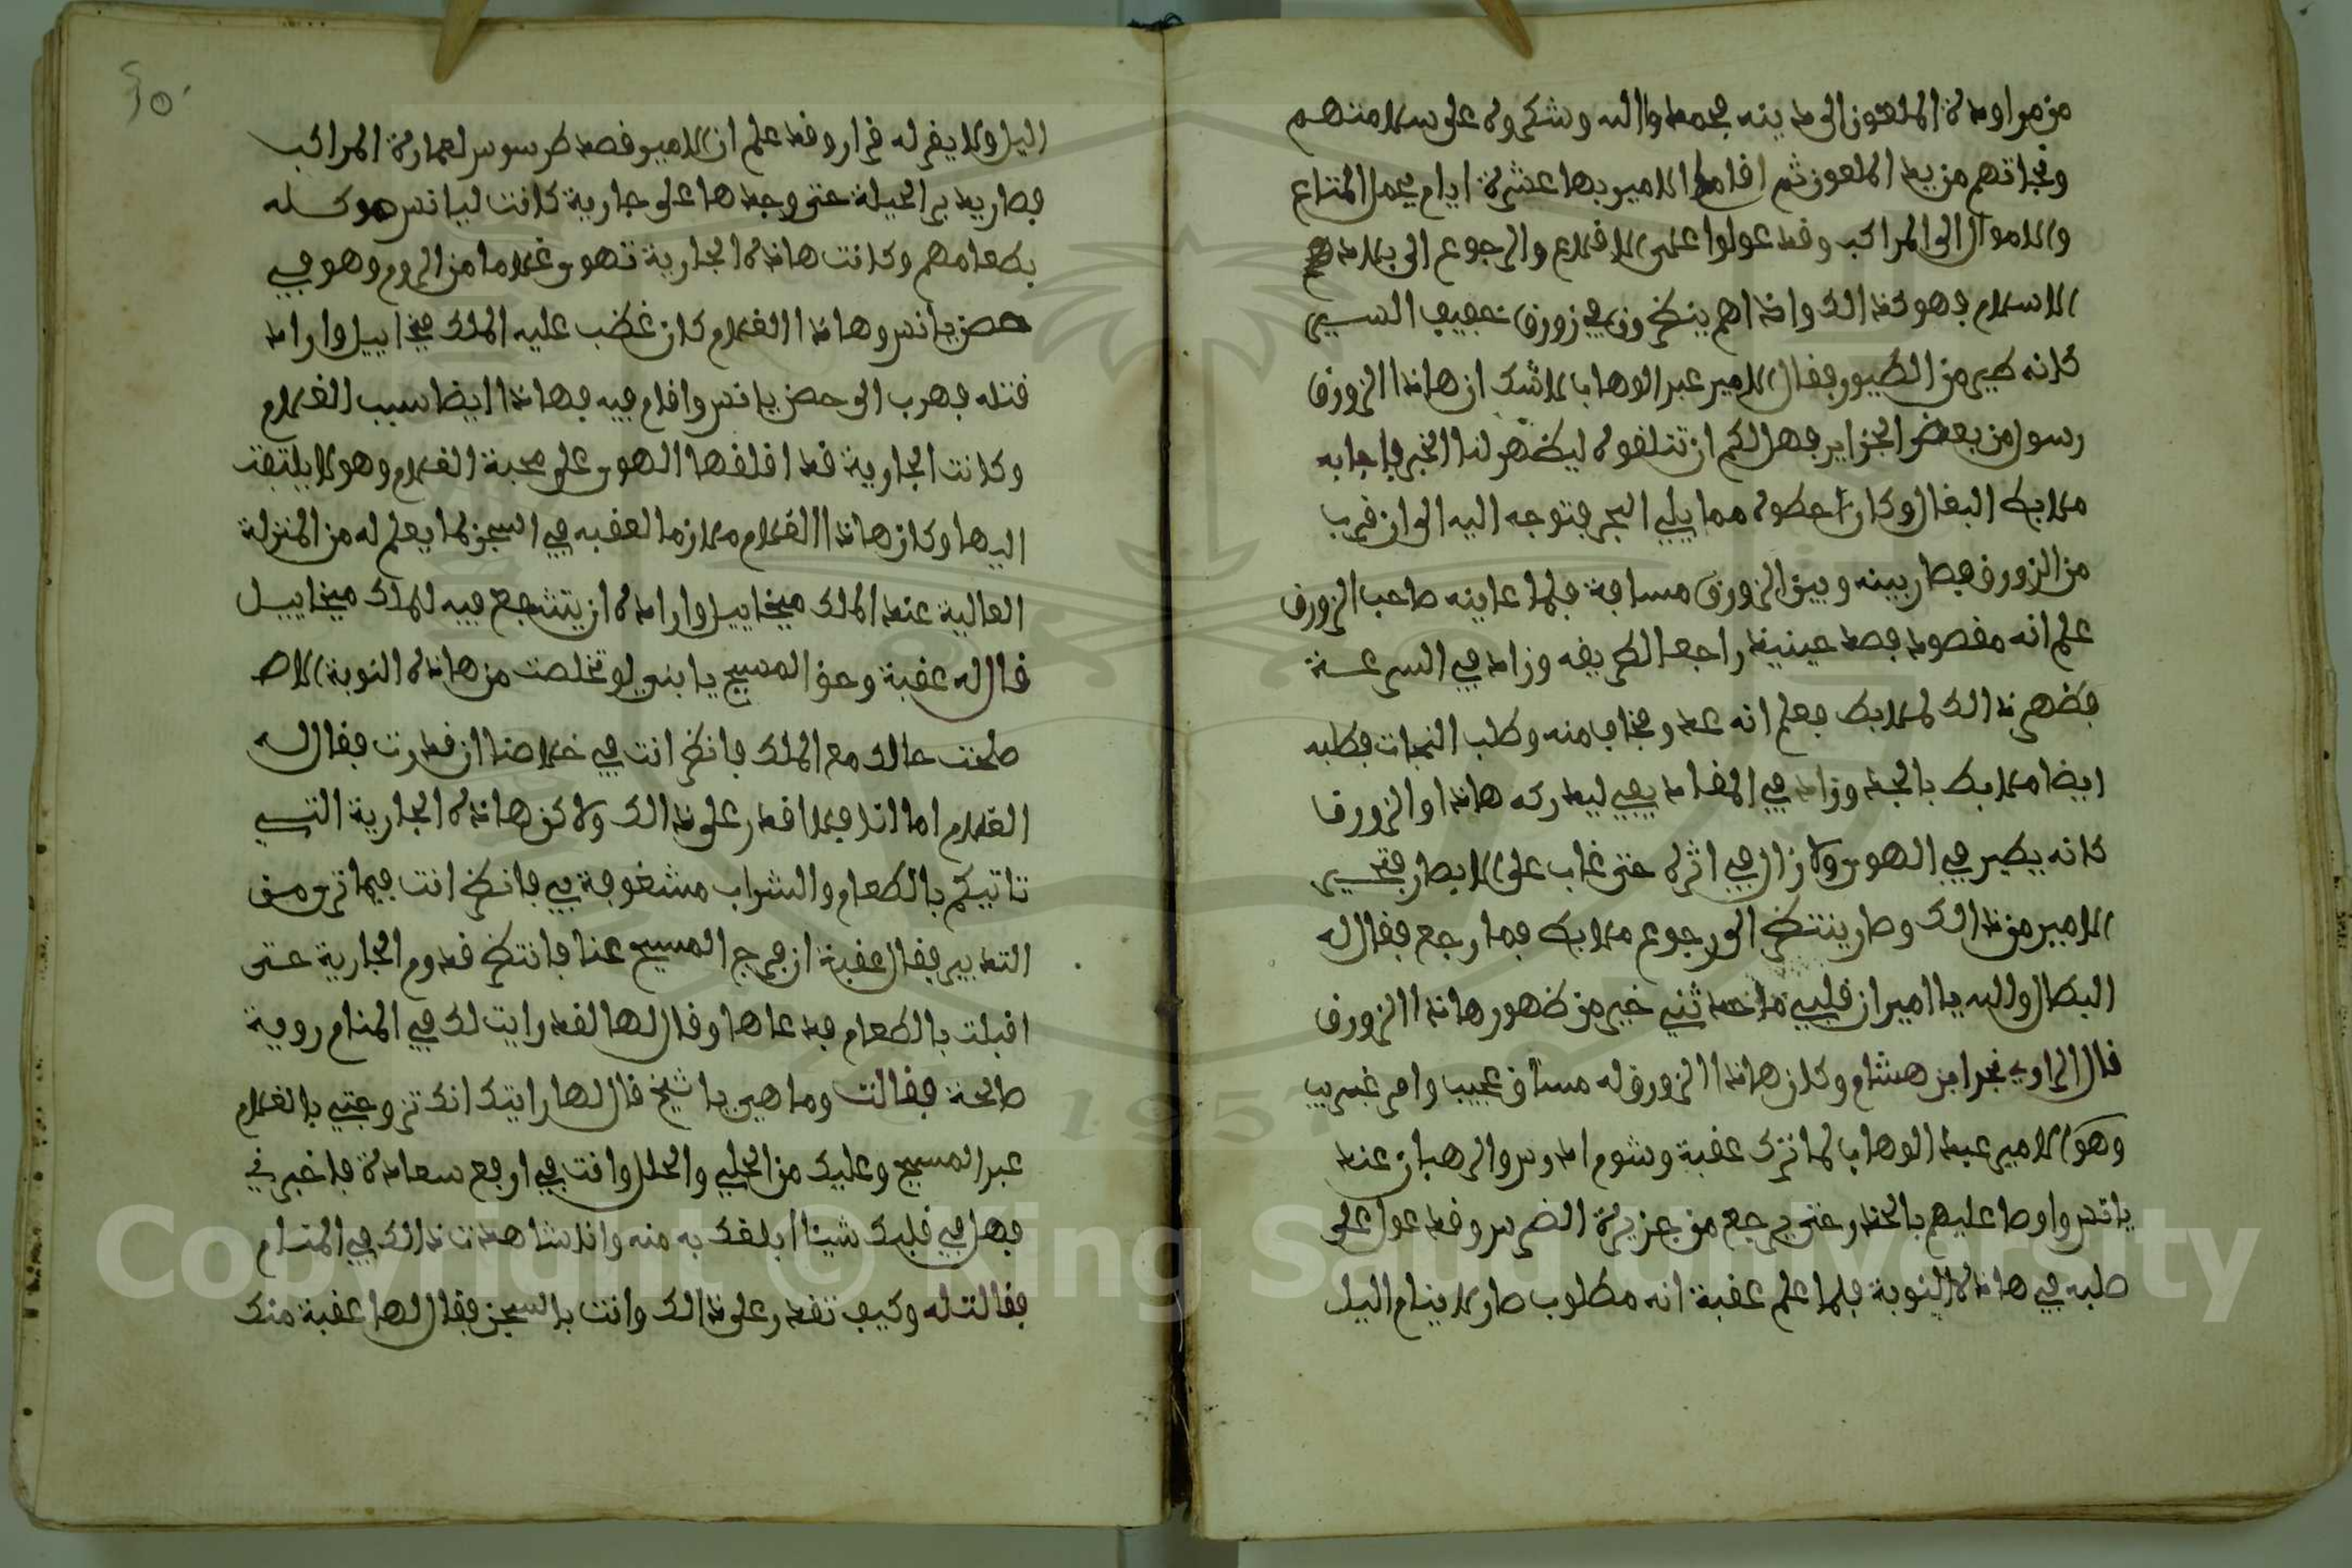 من مراودة الملعون الى مدينه فحمدوا الله وشكروه على سلامتهم
ونجاتهم من يد الملعون ثم اقام الامير بها عشرة ايام يحمل المتاع
والاموال الى المراكب وقد عولوا على الاقلاع والرجوع الى بلاد
الاسلام فهو كذالك واذاهم ينظرون في زورق خفيف السير
كانه طير من الطيور فقال الامير عبد الوهاب لاشك ان هاذا الزورق
رسول من بعض الجزاير فهل لكم ان تتلقوه ليظهر لنا الخبر فاجابه
ملابط البغال وكان احطوه مما يلي البحر فتوجه اليه الى ان قرب
من الزورق فصار بينه وبين الزورق مسافة فلما عاينه صاحب الزورق
علم انه مقصود فصد حينيذ راجعا لطريقه وزاد في السرعة
فظهر ذالك لملابط فعلم انه عدو مخاف منه وطلب النجات فطلبه
ايضا ملابط بالجد وزاد في المقاديف ليدركه هاذا والزورق
كانه يطير في الهوى ولازال في اثره حتى غاب على الابصار فتحير
الامير من ذالك وصار ينتظر الى رجوع ملابط فما رجع فقال له
البطال والله يا امير ان قلبي ما حدثني خير من ظهور هاذا الزورق
قال الراوي نجد ابن هشام وكان هاذا الزورق له مساق عجيب وامر غريب
وهو الامير عبد الوهاب لما ترك عقبة وشومادوس والرهبان عند
يانس واوصا عليهم بالحذر حتى يرجع من جزيرة الضرس وقد عول على
صلبه في هاذه النوبة فلما علم عقبة انه مطلوب صار لا ينام الليل
٣٥٠
اليل ولا يقر له قرار وقد علم ان الامير قصد طرسوس لعمارة المراكب
فصار يدبر الحيلة حتى وجدها على جارية كانت ليانس موكلة
بطعامهم وكانت هاذه الجارية تهوى غلاما من الروم وهو في
حصن يانس وهاذا الغلام كان غضب عليه الملك ميخاييل واراد
قتله فهرب الى حصن يانس واقام فيه فهاذا ايضا سبب الغلام
وكانت الجارية قد اقلقها الهوى على محبة الغلام وهو لا يلتفت
اليها وكان هاذا الغلام ملازما لعقبه في السجن لما يعلم له من المنزلة
العالية عند الملك ميخاييل واراده ان يتشفع فيه للملك ميخاييل
قال له عقبة وحق المسيح يا بني لو تخلصت من هاذه النوبة لاص
صلحت حالك مع الملك فانظر انت في خلاصنا ان قدرت فقال له
الغلام اما انا فلا اقدر على ذالك ولاكن هاذه الجارية التي
تاتيكم بالطعام والشراب مشغوفة بي فانظر انت فيما ترى من
التدبير فقال عقبة ان فرج المسيح عنا فانتظر قدوم الجارية حتى
اقبلت بالطعام فدعاها وقال لها لقد رايت لك في المنام روية
صالحة فقالت وما هي يا شيخ قال لها رايتك انك تزوجتي بالغلام
عبد المسيح وعليك من الحلي والحلل وانت في ارفع سعادة فاخبرني
فهل في قلبك شيئا ابلغك به منه وانا شاهدت ذالك في المنام
فقالت له وكيف تقدر على ذالك وانت بالسجن فقال لها عقبة منك
Copyright © King Saud University
1957